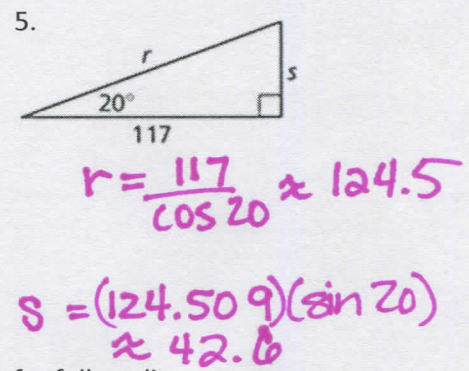 5.
r
s
20°
117
r = 117 / cos 20 ≈ 124.5
s = (124.509)(sin 20)
≈ 42.6